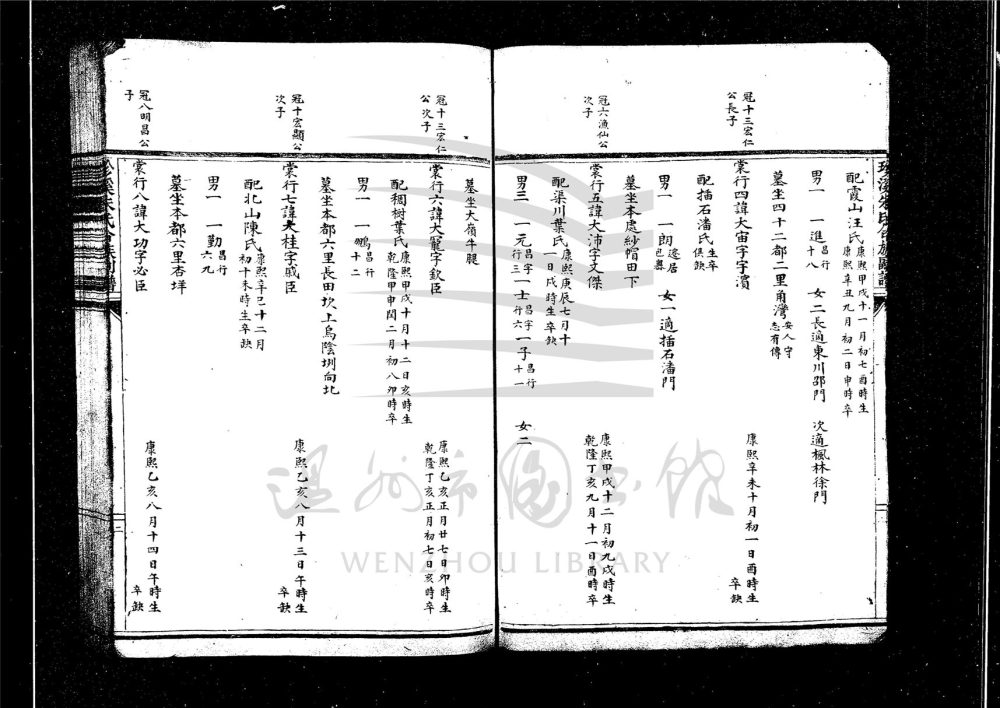 珍溪朱氏合族副譜
配霞山汪氏 康熙甲戌十一月初七酉時生 康熙辛丑九月初二日申時卒
男一 一進 昌行十八 女二 長適東川邵門 次適楓林徐門
墓坐四十二都二里角灣 安人守志有傳
冠十三宏仁公長子
棠行四諱大宙字字濱 康熙辛未十月初一日酉時生 卒缺
配插石潘氏 生卒俱缺
男一 一朗 遷居 女一適插石潘門
墓坐本處紗帽田下
冠六漁仙公次子
棠行五諱大沛字文傑 康熙甲戌十二月初九戌時生 乾隆丁亥九月十一日酉時卒
配渠川葉氏 康熙庚辰七月十一日戌時生 卒缺
男三 一元 昌字行三 一士 昌字行六 一子 昌行十一 女二
墓坐大嶺牛腿
冠十三宏仁公次子
棠行六諱大寵字欽臣 康熙乙亥正月廿七日卯時生 乾隆丁亥正月初七日亥時卒
配稠樹葉氏 康熙甲戌十月十二日亥時生 乾隆甲申閏二月初八卯時卒
男一 一鵬 昌行十二
墓坐本都六里長田坎上烏陰圳向北
冠十宏顯公次子
棠行七諱大桂字戚臣 康熙乙亥八月十三日午時生 卒缺
配北山陳氏 康熙辛巳十二月初十未時生 卒缺
男一 一勤 昌行六九
墓坐本都六里杏垟
冠八明昌公子
棠行八諱大功字必臣 康熙乙亥八月十四日午時生 卒缺
溫州市圖書館
WENZHOU LIBRARY